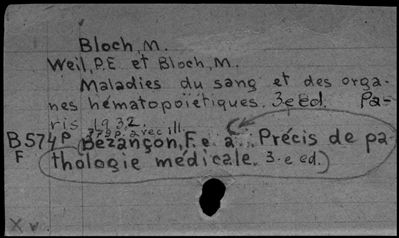 Bloch, M.
Weil, P.E. et Bloch, M.
Maladies du sang et des orga-
nes hématopoïétiques. 3e ed. Pa-
ris 1932.
379p. avec ill.
B574p Bezançon, F. e a. Précis de pa
F thologie médicale. 3-e ed.)
X v